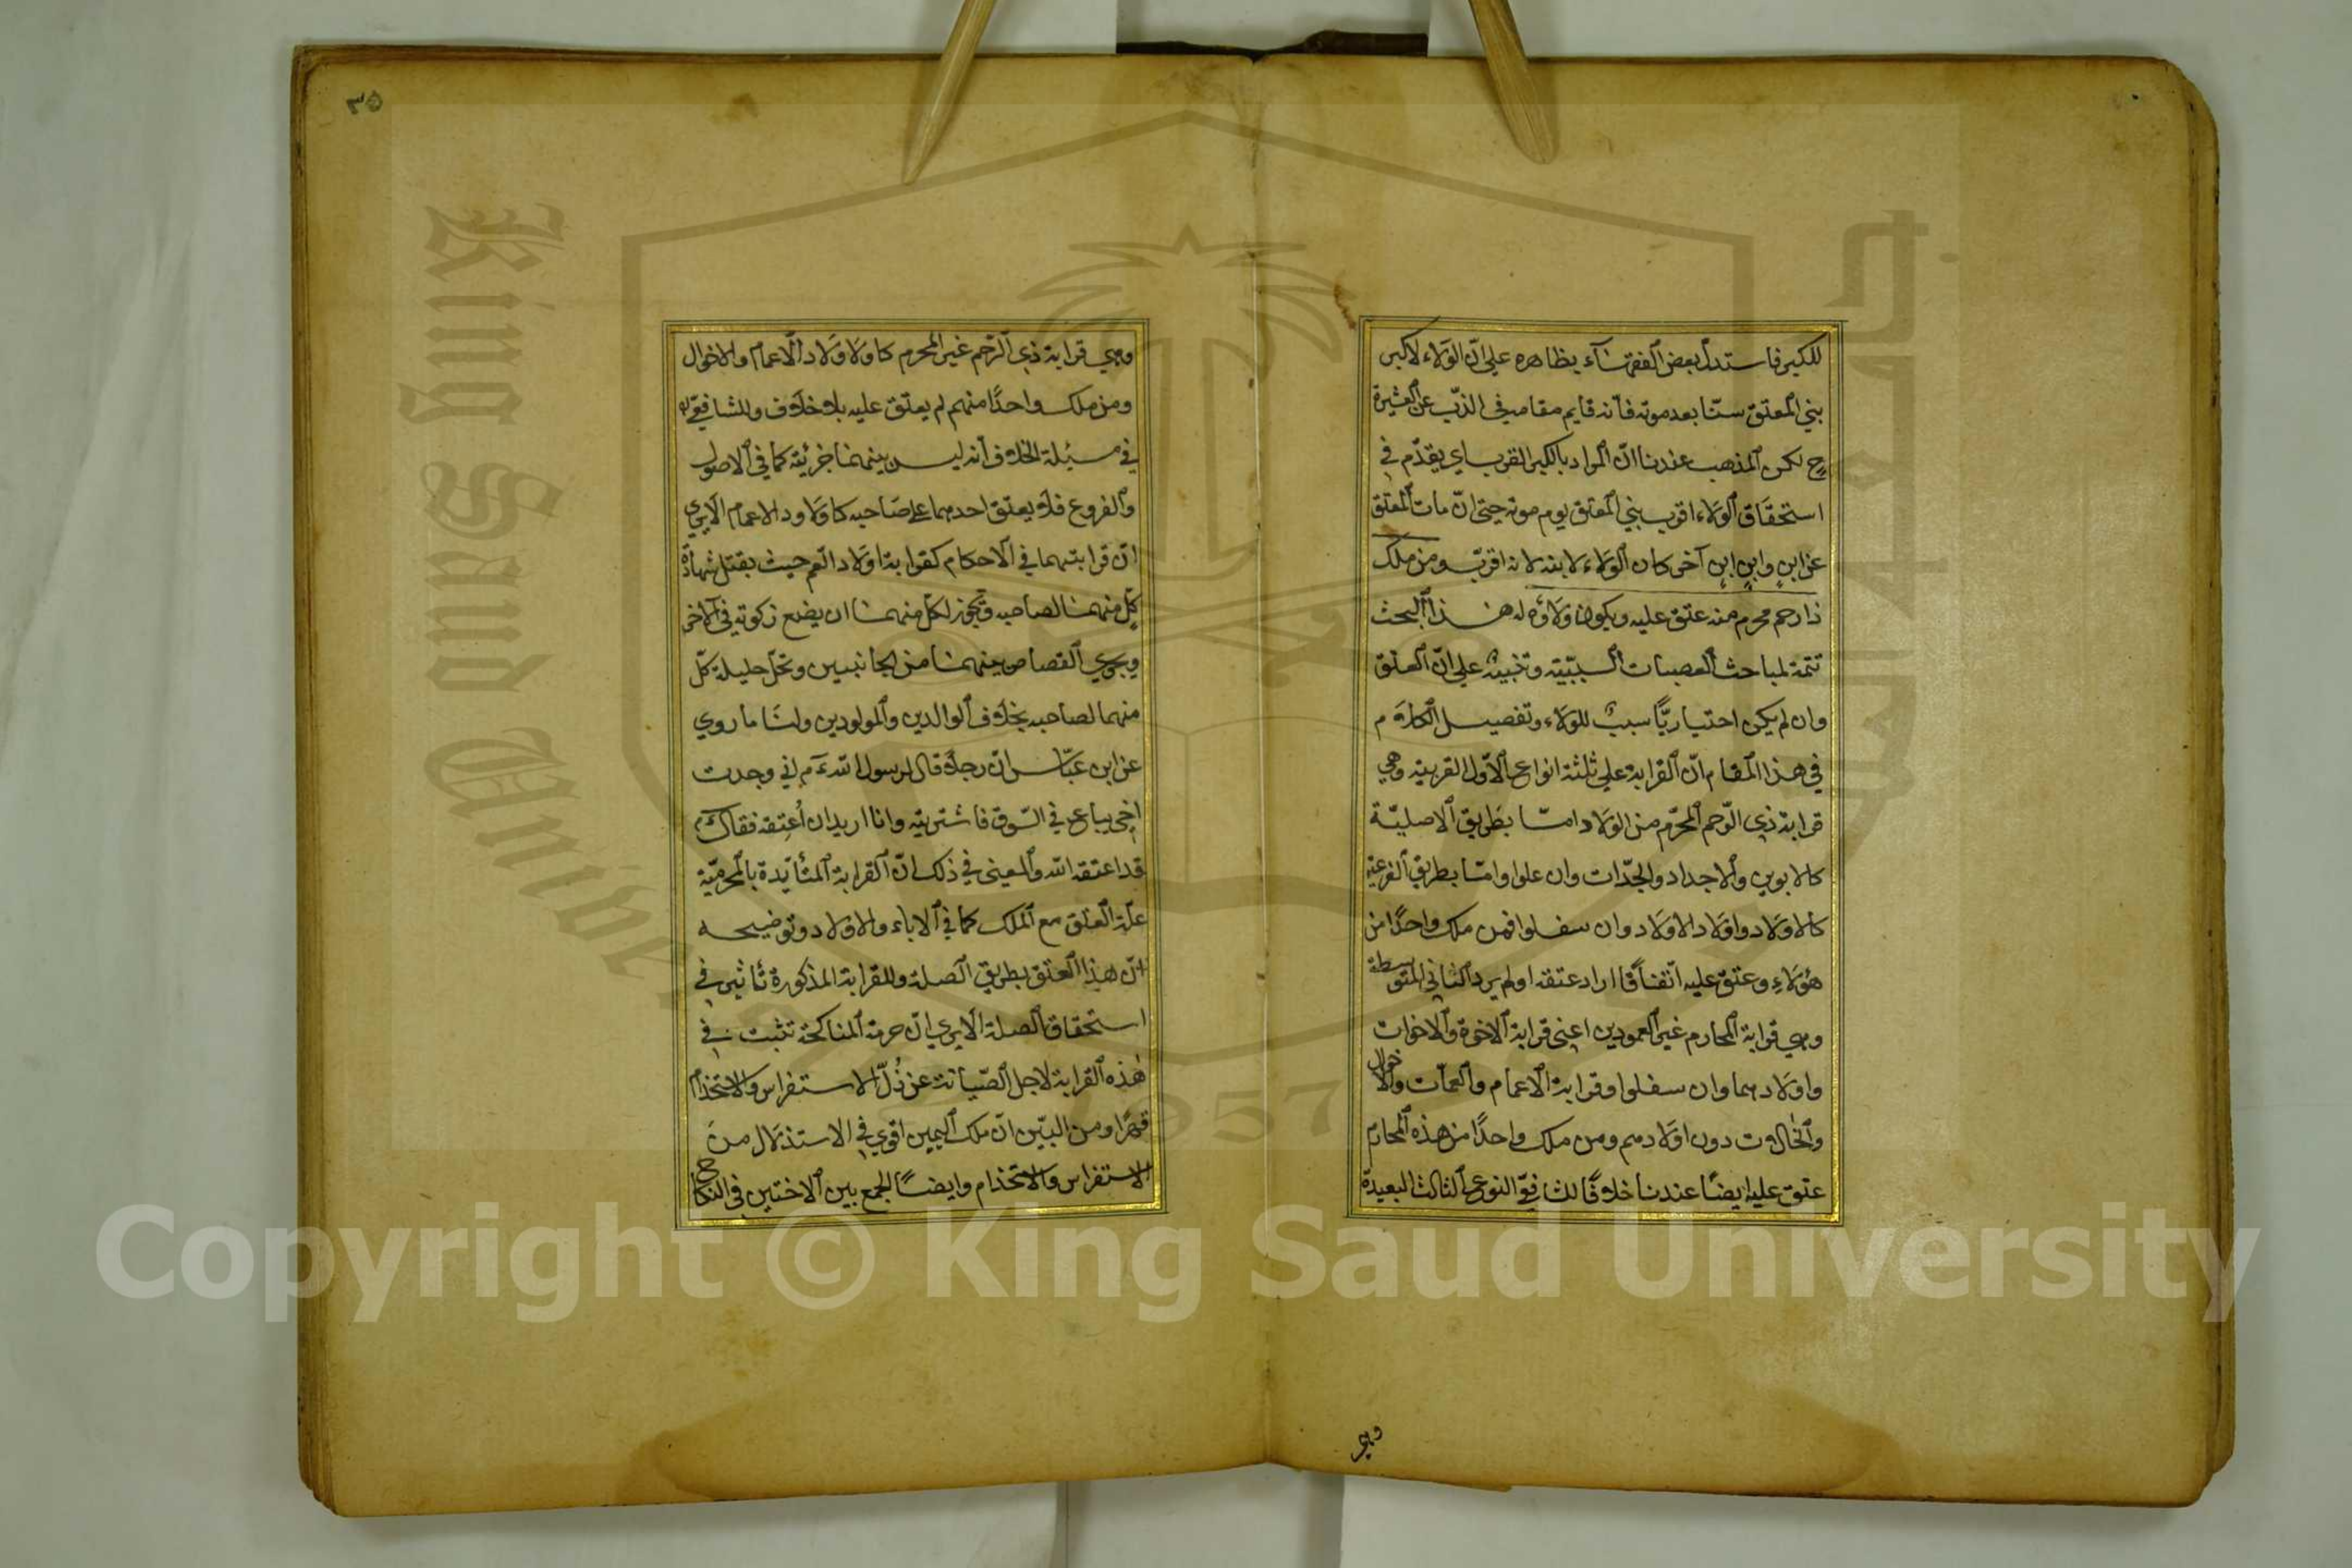 للكبير فاستدل بعض الفقهاء بظاهره على انّ الولاء لاكبر
بني المعتق سنّا بعد موته فانه قايم مقامه في الذبّ عن العشيرة
ح لكن المذهب عندنا انّ المراد بالكبر القرب اي يقدّم في
استحقاق الولاء اقرب بني المعتق يوم موته حتى انّ مات المعتق
عن ابنٍ وابنِ ابنٍ آخر كان الولاء لابنه لانه اقرب ومن ملك
ذا رحم محرم منه عتق عليه ويكون ولاؤه له هذا البحث
تتمة لمباحث العصبات السببيّة وتنبيهٌ على انّ العتق
وان لم يكن اختياريّاً سببٌ للولاء وتفصيل الكلام
في هذا المقام انّ القرابة على ثلثة انواع الاوّل القريبة وهي
قرابة ذي الرّحم المحرّم من الولاد امّا بطريق الاصليّة
كالابوين والاجداد والجدّات وان علوا وامّا بطريق الفرعيّة
كالاولاد واولاد الاولاد وان سفلوا فمن ملك واحدًا من
هؤلاءِ وعتق عليه اتّفاقًا اراد عتقه او لم يرد الثاني المتوسطة
وهي قرابة المحارم غير العمودين اعني قرابة الاخوة والاخوات
واولادهما وان سفلوا وقرابة الاعمام والعمّات والاخوال
والخالات دون اولادهم ومن ملك واحدًا من هذه المحارم
عتق عليه ايضًا عندنا خلافًا للشافعيّ النوع الثالث البعيدة
وهي
٣٥
وهي قرابة ذي الرّحم غير المحرم كاولاد الاعمام والاخوال
ومن ملك واحدًا منهم لم يعتق عليه بلا خلاف وللشافعيّ
في مسئلة الخلاف أنه ليس بينهما جزئيّة كما في الاصول
والفروع فلا يعتق احدهما على صاحبه كاولاد الاعمام الا يرى
انّ قرابتهما في الاحكام كقرابة اولاد العم حيث يقبل شهادة
كلٍّ منهما لصاحبه ويجوز لكل منهما ان يضع زكوته في الآخر
ويجري القصاص بينهما من الجانبين وتحلّ حليلة كلّ
منهما لصاحبه بخلاف الوالدين والمولودين ولنا ما روي
عن ابن عبّاس انّ رجلا قال لرسول الله ءم اني وجدت
اخي يباع في السّوق فاشتريته وانا اريد ان أعتقه فقال ءم
قد اعتقه الله والمعنى في ذلك انّ القرابة المتأيّدة بالمحرميّة
علّة العتق مع الملك كما في الاباء والاولاد وتوضيحه
انّ هذا العتق بطريق الصلة وللقرابة المذكورة تأثير في
استحقاق الصلة الا يرى انّ حرمة المناكحة تثبت في
هذه القرابة لاجل الصّيانة عن ذُلّ الاستفراس والاستخدام
قهرًا ومن البيّن انّ ملك اليمين اقوي في الاستذلال من
الاستفراس والاستخدام وايضًا الجمع بين الاختين في النكاح
King Saud University
1957
Copyright © King Saud University